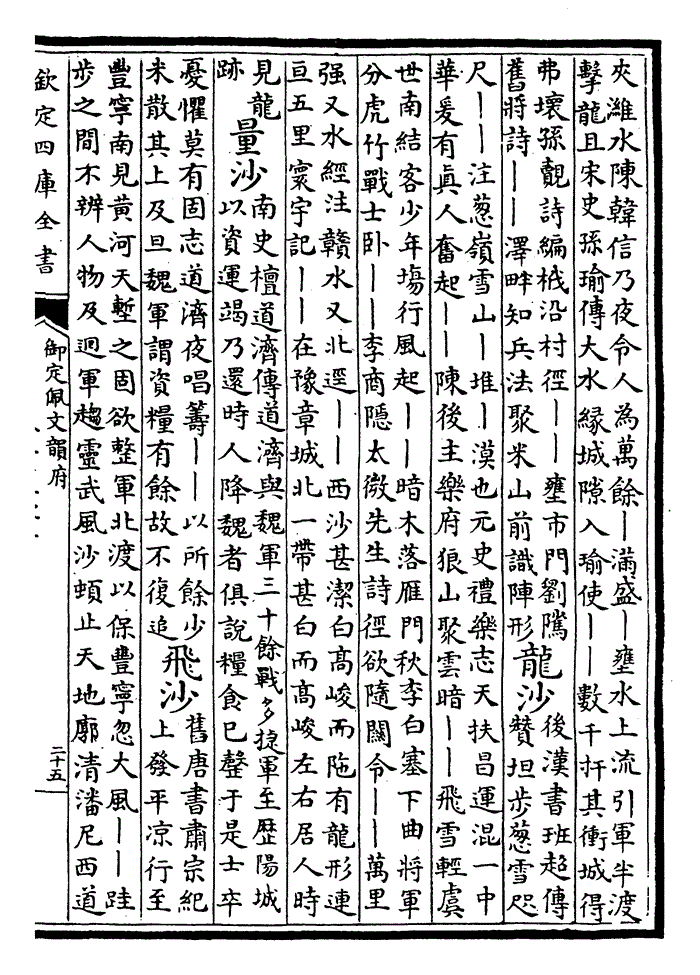 夾濰水陳韓信乃夜令人為萬餘丨滿盛丨壅水上流引軍半渡
擊龍且宋史孫瑜傳大水縁城隙入瑜使丨丨數千扞其衝城得
弗壞孫覿詩編栰沿村徑丨丨壅市門劉隲
舊將詩丨丨澤畔知兵法聚米山前識陣形
龍沙
後漢書班超傳
贊坦步葱雪咫
尺丨丨注葱嶺雪山丨堆丨漠也元史禮樂志天扶昌運混一中
華爰有眞人奮起丨丨陳後主樂府狼山聚雲暗丨丨飛雪輕虞
世南結客少年塲行風起丨丨暗木落雁門秋李白塞下曲將軍
分虎竹戰士卧丨丨李商隠太微先生詩徑欲隨關令丨丨萬里
强又水經注贛水又北逕丨丨西沙甚潔白髙峻而陁有龍形連
亘五里寰宇記丨丨在豫章城北一帶甚白而髙峻左右居人時
見龍
跡
量沙
南史檀道濟傳道濟與魏軍三十餘戰多捷軍至歴陽城
以資運竭乃還時人降魏者俱說糧食已罄于是士卒
憂懼莫有固志道濟夜唱籌丨丨以所餘少
米散其上及旦魏軍謂資糧有餘故不復追
飛沙
舊唐書肅宗紀
上發平凉行至
豐寧南見黄河天塹之固欲整軍北渡以保豐寧忽大風丨丨跬
步之間不辨人物及迴軍趨靈武風沙頓止天地廓清潘尼西道
欽定四庫全書
御定佩文韻府
二十五